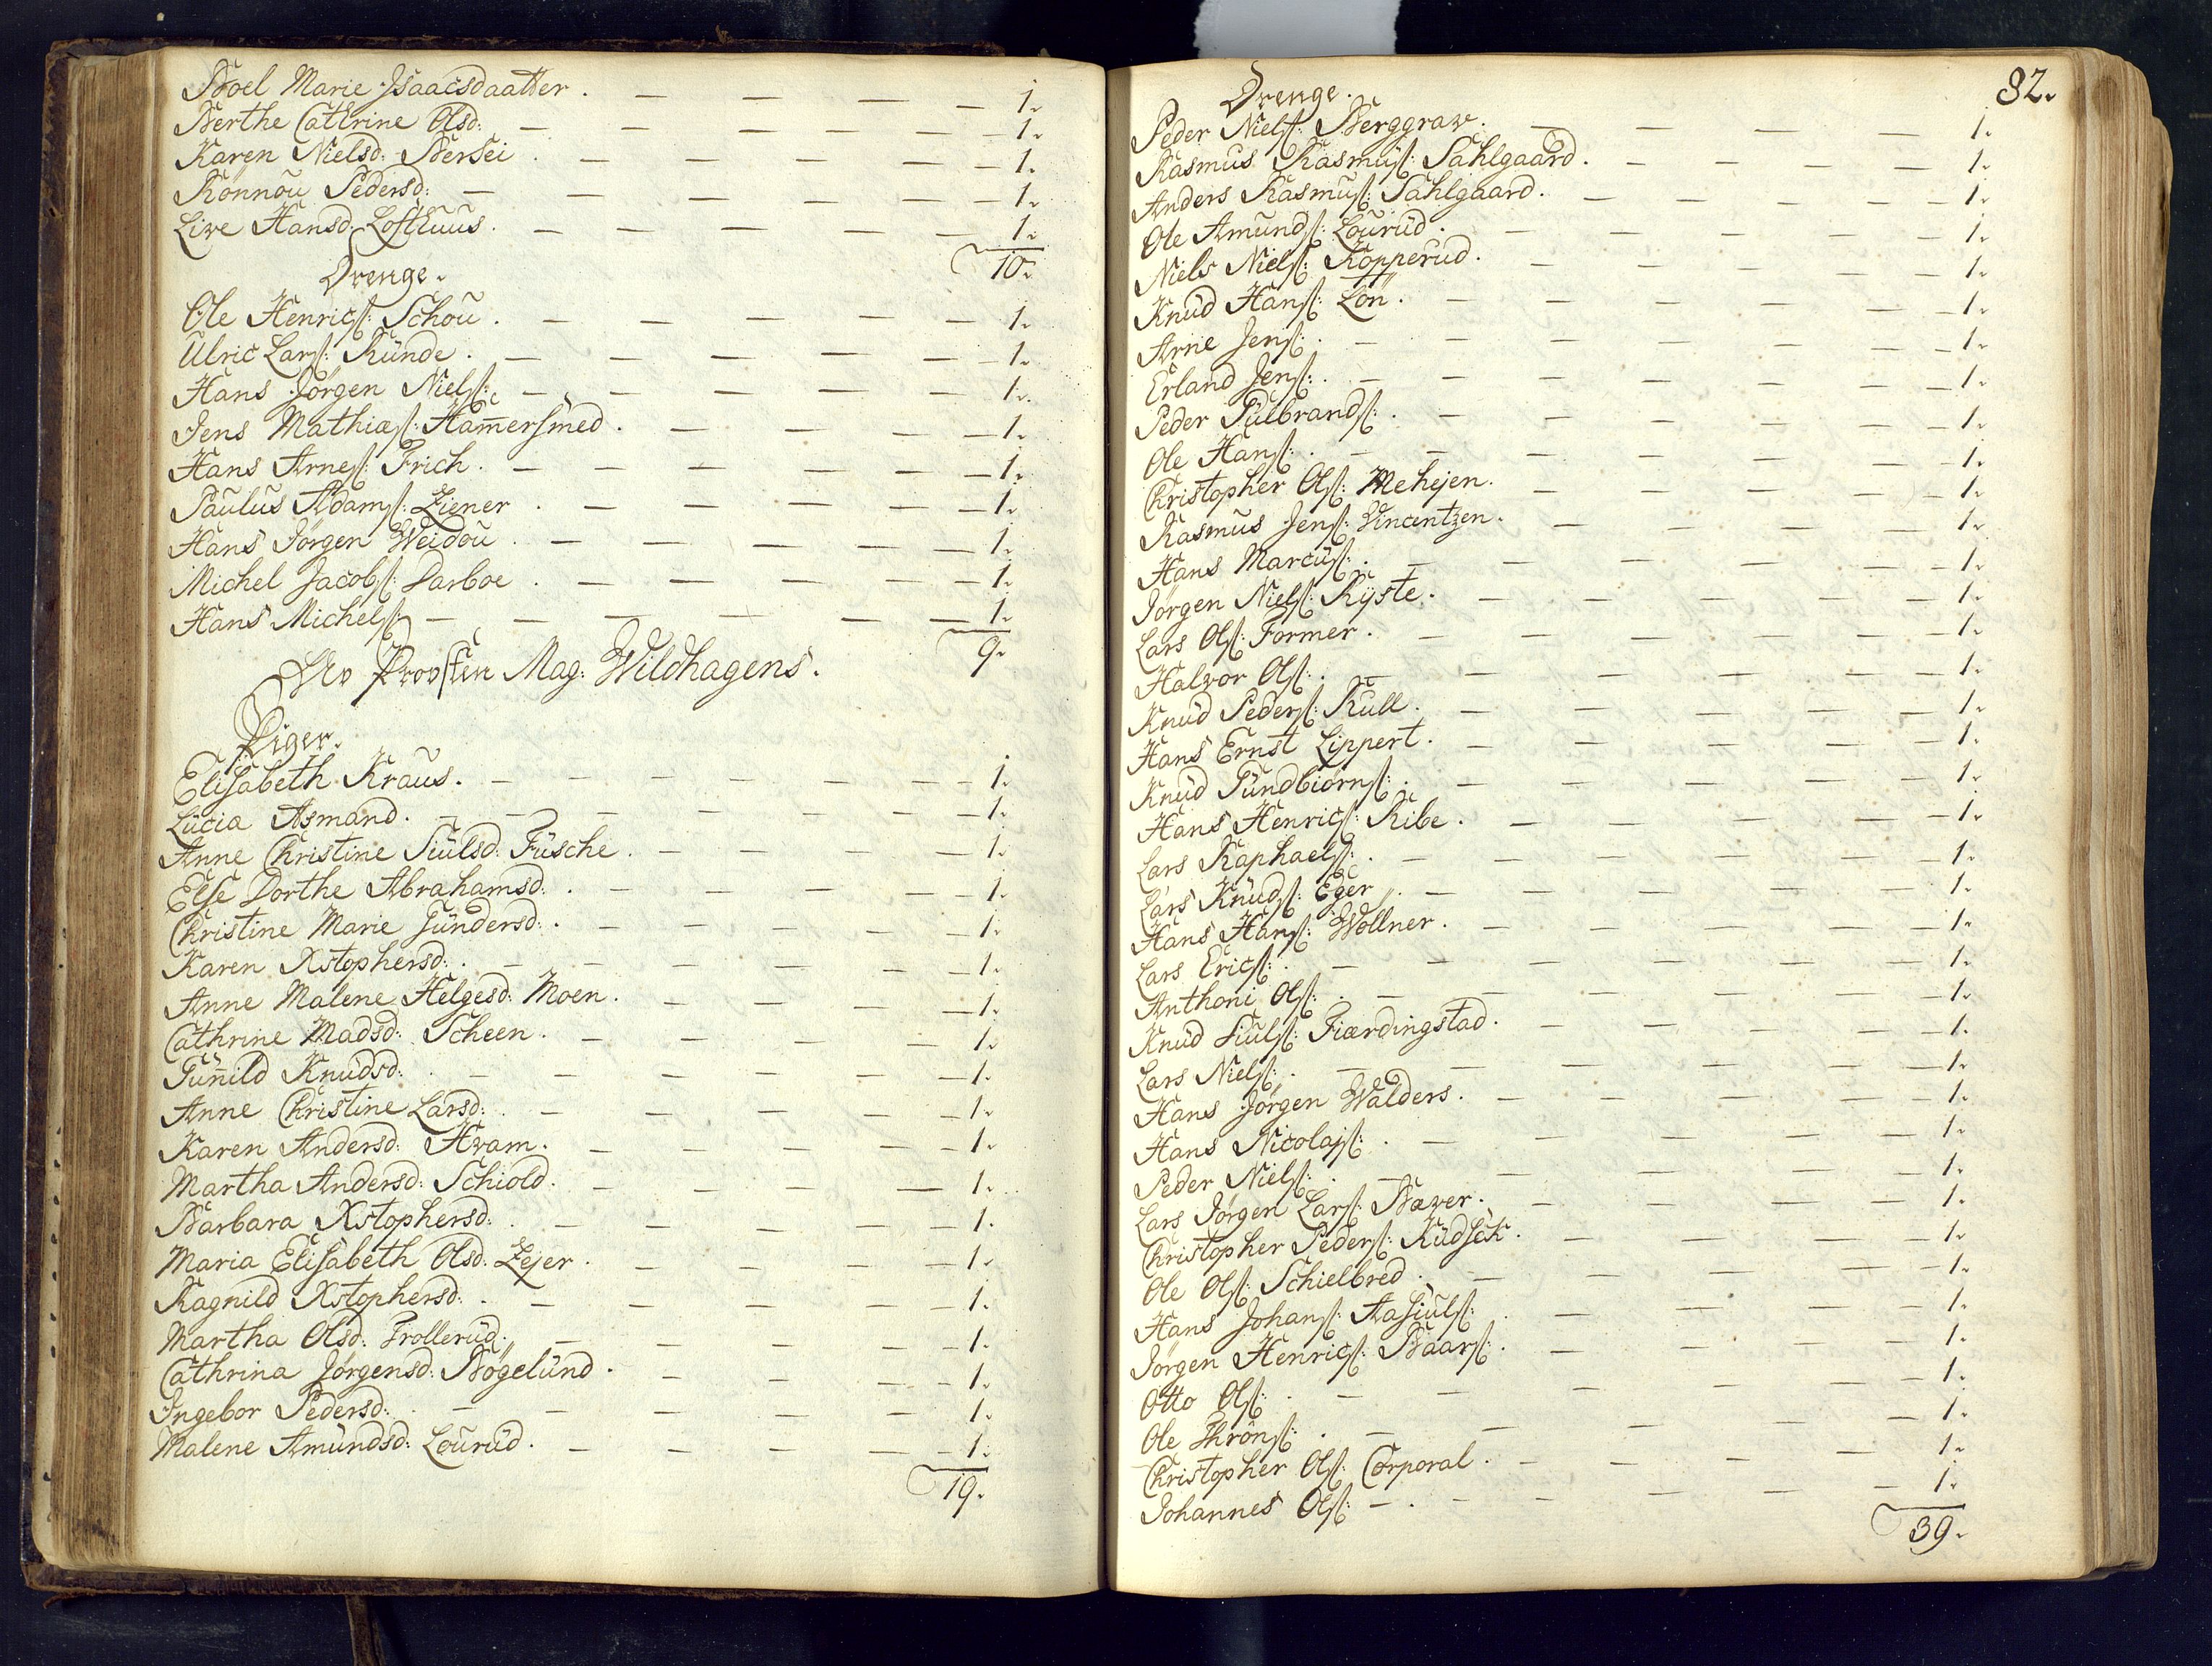 Boel Marie Isaacsdaatter. — — — — 1.
Berthe Cathrine Olsd: — — — — — 1.
Karen Nielsd: Bersei. — — — — — 1.
Rönnou Pedersd: — — — — — 1.
Live Hansd: Lofthuus. — — — — — 1.
10.
Drenge.
Ole Henrics: Schou. — — — — — 1.
Ulric Lars: Runde. — — — — — 1.
Hans Jörgen Niels: — — — — — 1.
Jens Mathias: Ham̅ersmed. — — — — 1.
Hans Arnes: Frich. — — — — — 1.
Paulus Adams: Ziener. — — — — — 1.
Hans Jörgen Weidou. — — — — — 1.
Michel Jacobs: Darboe. — — — — — 1.
Hans Michels: — — — — — — 1.
9.
Av Provsten Mag: Wildhagens.
Piger.
Elisabeth Kraus. — — — — — 1.
Lucia Asmand. — — — — — 1.
Anne Christine Siulsd: Fusche. — — — — 1.
Else Dorthe Abrahamsd: — — — — 1.
Christine Marie Gundersd: — — — — 1.
Karen Xstophersd: — — — — — 1.
Anne Malene Helgesd: Moen. — — — — 1.
Cathrine Madsd: Scheen. — — — — 1.
Gun̅ild Knudsd: — — — — — 1.
Anne Christine Larsd: — — — — — 1.
Karen Andersd: Hvam. — — — — — 1.
Martha Andersd: Schiold. — — — — 1.
Barbara Xstophersd: — — — — — 1.
Maria Elisabeth Olsd: Zejer. — — — — 1.
Ragnild Xstophersd: — — — — — 1.
Martha Olsd: Trollerud. — — — — — 1.
Cathrina Jörgensd: Bögelund. — — — — 1.
Ingebor Pedersd: — — — — — 1.
Malene Amundsd: Lourud. — — — — — 1.
19.
82.
Drenge.
Peder Niels: Berggrav. — — — — — 1.
Rasmus Rasmus: Sahlgaard. — — — — 1.
Anders Rasmus: Sahlgaard. — — — — 1.
Ole Amunds: Lourud. — — — — — 1.
Niels Niels: Kopperud. — — — — — 1.
Knud Hans: Lön. — — — — — 1.
Arne Jens: — — — — — — 1.
Erland Jens: — — — — — — 1.
Peder Gulbrands: — — — — — 1.
Ole Hans: — — — — — — 1.
Christopher Ols: Mehejen. — — — — 1.
Rasmus Jens: Vincentzen. — — — — 1.
Hans Marcus: — — — — — 1.
Jörgen Niels: Ryste. — — — — — 1.
Lars Ols: Former. — — — — — 1.
Halvor Ols: — — — — — — 1.
Knud Peders: Rull. — — — — — 1.
Hans Ernst Lippert. — — — — — 1.
Knud Gundbiörns: — — — — — 1.
Hans Henrics: Ribe. — — — — — 1.
Lars Raphaels: — — — — — 1.
Lars Knuds: Eger. — — — — — 1.
Hans Hans: Wollner. — — — — — 1.
Lars Erics: — — — — — — 1.
Anthoni Ols: — — — — — — 1.
Knud Siuls: Fiærdingstad. — — — — 1.
Lars Niels: — — — — — — 1.
Hans Jörgen Walders. — — — — — 1.
Hans Nicolajs: — — — — — 1.
Peder Niels: — — — — — — 1.
Lars Jörgen Lars: Bæver. — — — — 1.
Christopher Peders: Rudsek. — — — — 1.
Ole Ols: Schielbred. — — — — — 1.
Hans Johans: Aasiuls: — — — — 1.
Jörgen Henrics: Baars: — — — — 1.
Otto Ols: — — — — — — 1.
Ole Thrōns: — — — — — 1.
Christopher Ols: Corporal. — — — — 1.
Johannes Ols: — — — — — 1.
39.